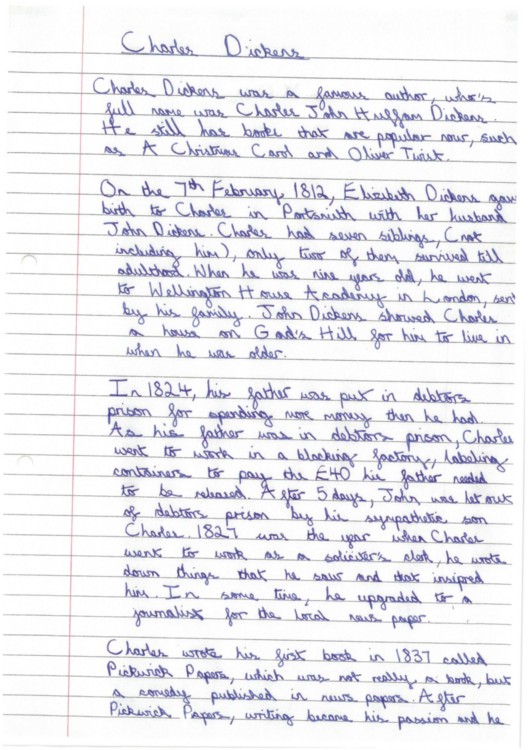 Charles Dickens
Charles Dickens was a famous author, who's
full name was Charles John Huffam Dickens.
He still has books that are popular now, such
as A Christmas Carol and Oliver Twist.
On the 7th February 1812, Elizabeth Dickens gave
birth to Charles in Portsmith with her husband
John Dickens. Charles had seven siblings, (not
including him), only two of them survived till
adulthood. When he was nine years old, he went
to Wellington House Academy in London, sent
by his family. John Dickens showed Charles
a house on Gad's Hill for him to live in
when he was older.
In 1824, his father was put in debtors
prison for spending more money then he had.
As his father was in debtors prison, Charles
went to work in a blacking factory, labeling
containers to pay the £40 his father needed
to be released. After 5 days, John was let out
of debtors prison by his sympathetic son
Charles. 1827 was the year when Charles
went to work as a soliciter's clerk, he wrote
down things that he saw and that insipred
him. In some time, he upgraded to a
journalist for the local news paper.
Charles wrote his first book in 1837 called
Pickwick Papers, which was not really a book, but
a comedy published in news papers. After
Pickwick Papers, writing became his passion and he